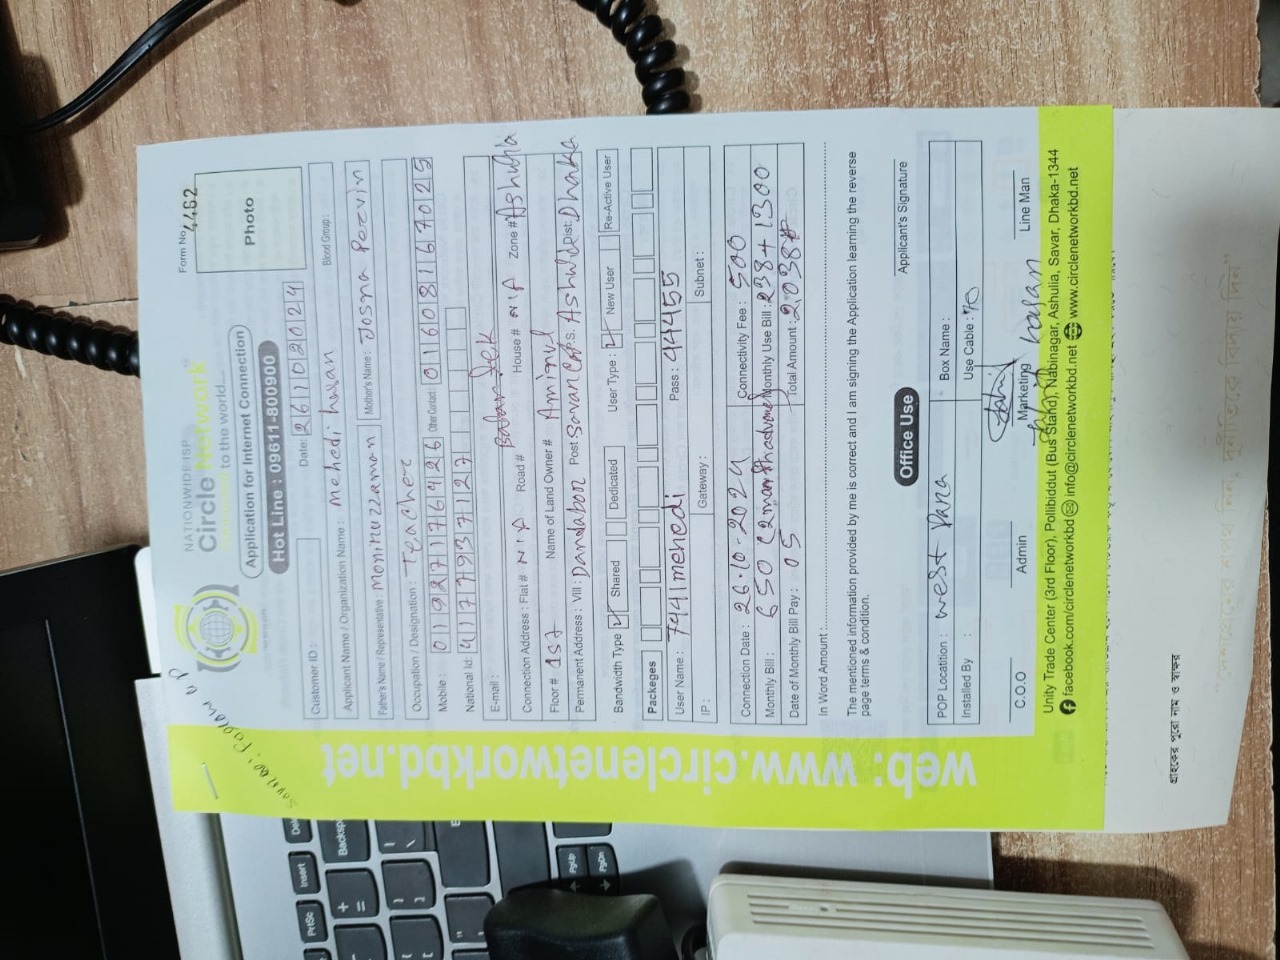 Form No. 4462
NATIONWIDE ISP
Circle Network
to the world...
Application for Internet Connection
Hot Line : 09611-800900
Photo
Customer ID :
Date: 26102024
Applicant Name / Organization Name : mehedi hassan
Blood Group :
Father's Name / Representative : Moniruzzaman Mother's Name : Josna Parvin
Occupation / Designation : Teacher
Mobile : 01927176426 Other Contact : 01608167025
National Id:
E-mail :
Connection Address : Flat # N/A Road # House # N/A Zone # Ashulia
Floor # 1st Name of Land Owner # Aminul
Permanent Address : Vill : Dandabor Post Savar P.S. Ashulia Dist: Dhaka
Bandwidth Type Shared Dedicated User Type : New User Re-Active User
Packeges
User Name : 7441mehedi Pass : 44455
IP : Gateway : Subnet :
Connection Date : 26-10-2024 Connectivity Fee : 500
Monthly Bill : 650 Monthly Use Bill : 238+1300
Date of Monthly Bill Pay : 05 Total Amount : 2038
In Word Amount
The mentioned information provided by me is correct and I am signing the Application learning the reverse
page terms & condition.
Applicant's Signature
Office Use
POP Locatition : west Para Box Name :
Installed By : Use Cable : 70
C.O.O Admin Marketing Line Man
Unity Trade Center (3rd Floor), Pollibiddut (Bus Stand), Nabinagar, Ashulia, Savar, Dhaka-1344
facebook.com/circlenetworkbd info@circlenetworkbd.net www.circlenetworkbd.net
web: www.circlenetworkbd.net
গ্রাহকের পুরো নাম ও স্বাক্ষর
PrtSc
Insert
Del
Backsp
PgUp
PgDn